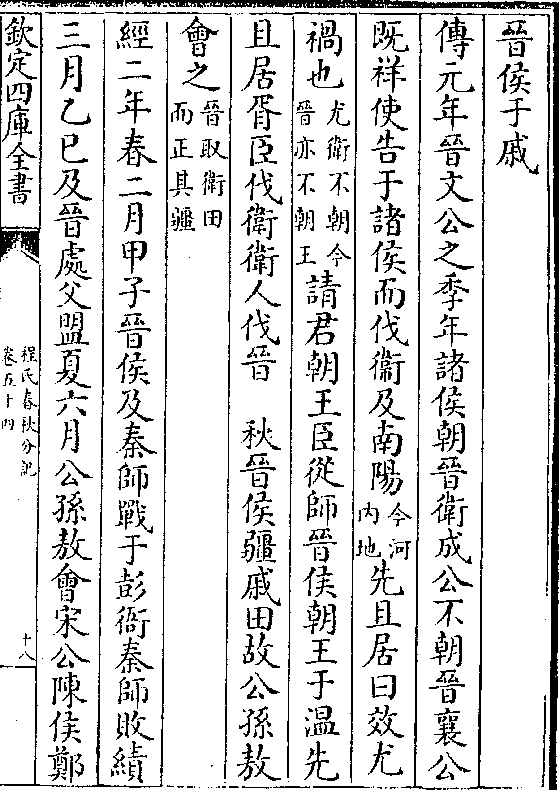 晉侯于戚
傳元年晉文公之季年諸侯朝晉衛成公不朝晉襄公
既祥使告于諸侯而伐衛及南陽今河内地先且居曰效尤
禍也尤衛不朝今晉亦不朝王請君朝王臣從師晉侯朝王于溫先
且居胥臣伐衛衛人伐晉　秋晉侯疆戚田故公孫敖
會之晉取衛田而正其疆
經二年春二月甲子晉侯及秦師戰于彭衙秦師敗績
三月乙巳及晉處父盟夏六月公孫敖會宋公陳侯鄭
欽定四庫全書
程氏春秋分記
卷五十四
十八